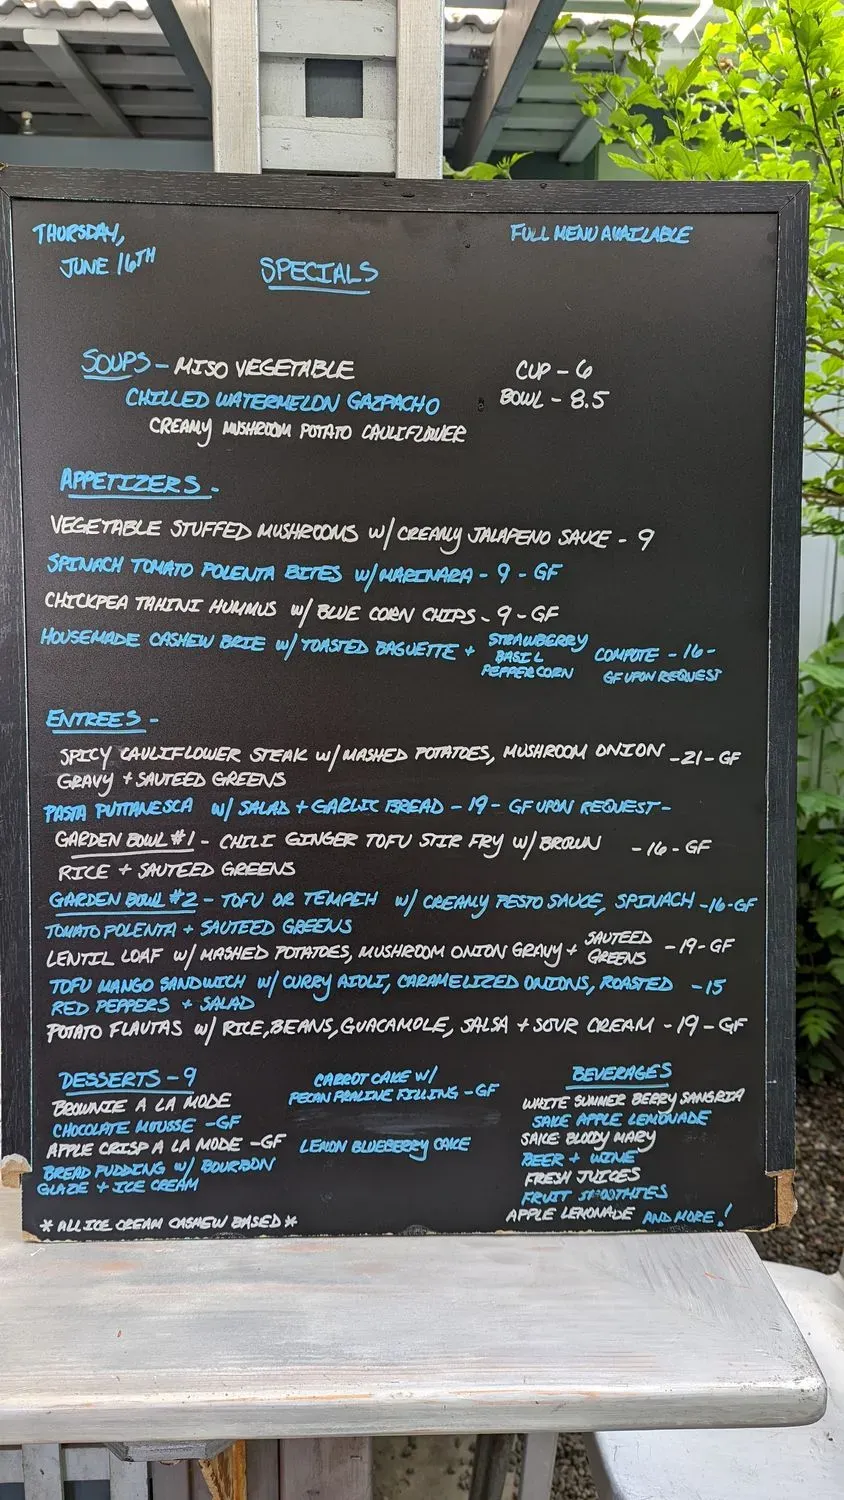 THURSDAY,
JUNE 16TH
FULL MENU AVAILABLE
SPECIALS
SOUPS - MISO VEGETABLE
CHILLED WATERMELON GAZPACHO
CREAMY MUSHROOM POTATO CAULIFLOWER
CUP - 6
BOWL - 8.5
APPETIZERS -
VEGETABLE STUFFED MUSHROOMS W/ CREAMY JALAPENO SAUCE - 9
SPINACH TOMATO POLENTA BITES W/ MARINARA - 9 - GF
CHICKPEA TAHINI HUMMUS W/ BLUE CORN CHIPS - 9 - GF
HOUSEMADE CASHEW BRIE W/ TOASTED BAGUETTE + STRAWBERRY BASIL PEPPERCORN COMPOTE - 16 -
GF UPON REQUEST
ENTREES -
SPICY CAULIFLOWER STEAK W/ MASHED POTATOES, MUSHROOM ONION - 21 - GF
GRAVY + SAUTEED GREENS
PASTA PUTTANESCA W/ SALAD + GARLIC BREAD - 19 - GF UPON REQUEST -
GARDEN BOWL #1 - CHILI GINGER TOFU STIR FRY W/ BROWN - 16 - GF
RICE + SAUTEED GREENS
GARDEN BOWL #2 - TOFU OR TEMPEH W/ CREAMY PESTO SAUCE, SPINACH - 16 - GF
TOMATO POLENTA + SAUTEED GREENS
LENTIL LOAF W/ MASHED POTATOES, MUSHROOM ONION GRAVY + SAUTEED GREENS - 19 - GF
TOFU MANGO SANDWICH W/ CURRY AIOLI, CARAMELIZED ONIONS, ROASTED - 15
RED PEPPERS + SALAD
POTATO FLAUTAS W/ RICE, BEANS, GUACAMOLE, SALSA + SOUR CREAM - 19 - GF
DESSERTS - 9
BROWNIE A LA MODE
CHOCOLATE MOUSSE - GF
APPLE CRISP A LA MODE - GF
BREAD PUDDING W/ BOURBON
GLAZE + ICE CREAM
* ALL ICE CREAM CASHEW BASED *
CARROT CAKE W/
PECAN PRALINE FILLING - GF
LEMON BLUEBERRY CAKE
BEVERAGES
WHITE SUMMER BERRY SANGRIA
SAKE APPLE LEMONADE
SAKE BLOODY MARY
BEER + WINE
FRESH JUICES
FRUIT SMOOTHIES
APPLE LEMONADE AND MORE!